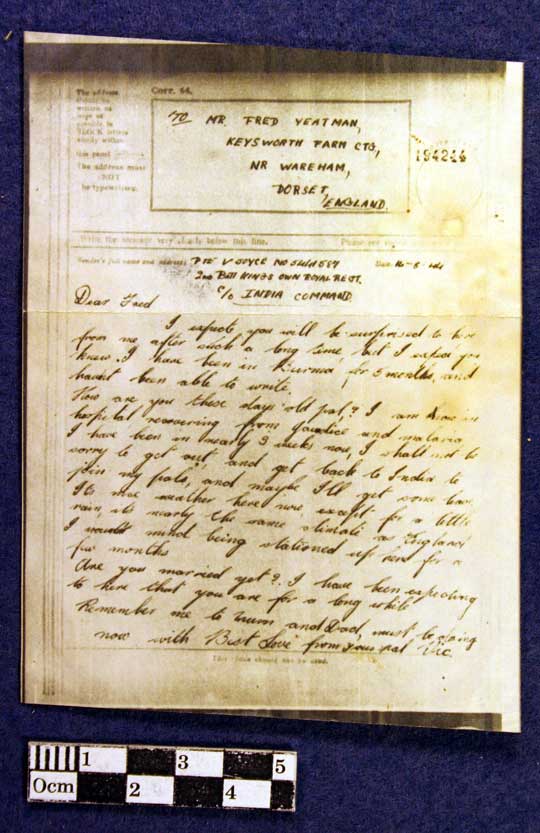 The address
must
NOT
be typewritten.
Corr. 44.
TO MR FRED YEATMAN,
KEYSWORTH FARM CTG,
NR WAREHAM,
DORSET,
ENGLAND.
194244
Write the message very below this line.
Sender's full name and address: PTE V JOYCE NO
2ND BTT KINGS OWN ROYAL REGT.
C/O INDIA COMMAND.
Dear Fred
I expecte you will be surprised to here
from me after such a long time, but I expect you
knew I have been in Burma for 5 months, and
havnt been able to write.
How are you these days old pal? I am now in
hospital recovering from jaudice and malaria
I have been in nearly 3 weeks now, I shall not be
sorry to get out and get back to India to
join my pals, and maybe I'll get some leave
Its nice weather here now, except for a little
rain, its nearly the same climate as England
I mind being stationed up here for a
few months
Are you married yet? I have been expecting
to here that you are for a long while
Remember me to Mum and Dad, must be going
now with Best Love from your pal Vic.
This should not be used.
0cm 1 2 3 4 5